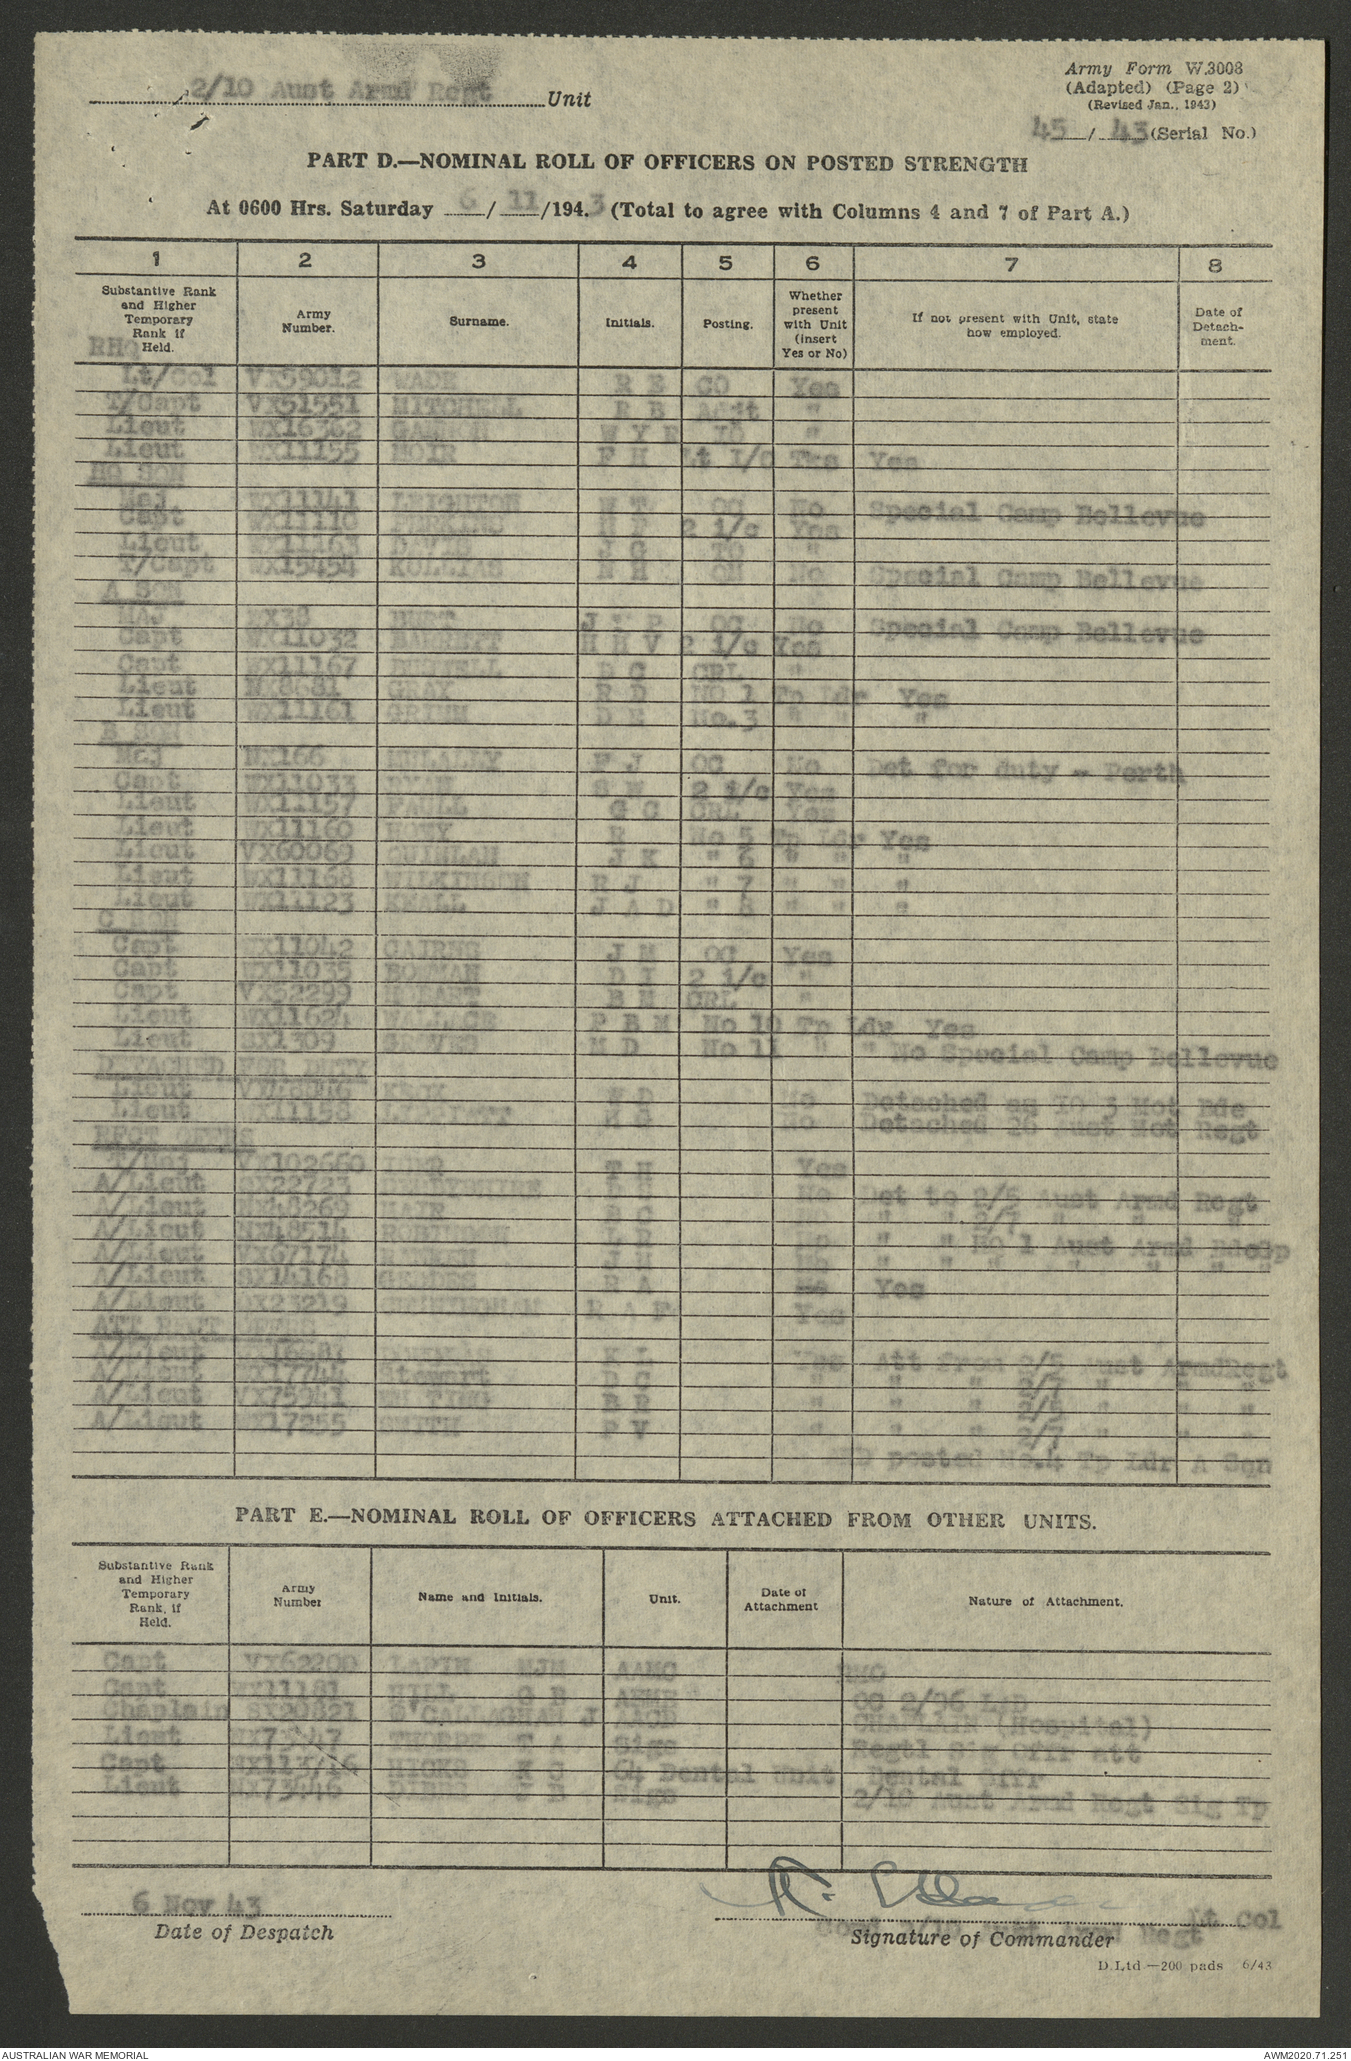 2/10 Aust Armd Regt Unit
Army Form W.3008
(Adapted) (Page 2)
(Revised Jan., 1943)
45 / 43 (Serial No.)
PART D.—NOMINAL ROLL OF OFFICERS ON POSTED STRENGTH
At 0600 Hrs. Saturday 6 / 11 /194.3 (Total to agree with Columns 4 and 7 of Part A.)
1 2 3 4 5 6 7 8
Substantive Rank and Higher Temporary Rank if Held. Army Number. Surname. Initials. Posting. Whether present with Unit (insert Yes or No) If not present with Unit, state how employed. Date of Detachment.
RHQ
Lt/Col VX59012 WADE R E CO Yes
T/Capt VX51551 MITCHELL R B Adjt "
Lieut WX16362 W Y IO "
Lieut WX11155 MOIR F H Lt I/C Tks Yes
HQ SQN
Maj WX11141 LEIGHTON OC No Special Camp Bellevue
Capt WX11110 PERKINS 2 i/c Yes
Lieut WX11163 DAVIS J G TO "
T/Capt WX15454 KOLLIAS QM No Special Camp Bellevue
A SQN
MAJ WX38 BURT OC No Special Camp Bellevue
Capt WX11032 BARRETT H H V 2 i/c Yes
Capt WX11167 D G CRL "
Lieut NX8681 GRAY R D NO 1 Tp Ldr Yes
Lieut WX11161 GRIMM D E No.3 " " "
B SQN
Maj NX166 MULALLY F J OC No Det for duty - Perth
Capt WX11033 RYAN S W 2 i/c Yes
Lieut WX11157 PAULL G C CRL Yes
Lieut WX11160 R No 5 Tp Ldr Yes
Lieut VX60069 QUINLAN J K " 6 " " "
Lieut WX11168 WILKINSON R J " 7 " " "
Lieut WX11123 KNALL J A D " 8 " " "
C SQN
Capt WX11042 CAIRNS J M OC Yes
Capt WX11035 BOWMAN D I 2 i/c "
Capt VX52299 HOBART B M CRL "
Lieut WX11624 WALLACE P B M No 10 Tp Ldr Yes
Lieut SX1309 GROVES M D No 11 " " No Special Camp Bellevue
DETACHED FOR DUTY
Lieut KNOX No Detached as IO 3 Mot Bde
Lieut WX11158 LIPPIATT No Detached 26 Aust Mot Regt
RFCT OFFRS
T/Maj VX102660 T H Yes
A/Lieut SX22723 DERBYSHIRE No Det to 2/5 Aust Armd Regt
A/Lieut NX48269 HAIR No " " 2/7 " " "
A/Lieut NX48514 ROBINSON L R No " " No 1 Aust Armd BdeGp
A/Lieut VX67174 RANKEN J H No " " " " " " "
A/Lieut SX14168 GEDDES R A No Yes
A/Lieut QX23219 CUNNINGHAM R A F Yes
ATT RFCT OFFRS
A/Lieut K L Yes Att from 2/5 Aust ArmdRegt
A/Lieut WX17744 Stewart D G " " " 2/7 " " "
A/Lieut VX75941 B R " " " 2/5 " " "
A/Lieut WX17255 SMITH P V " " " 2/7 " " "
AND posted No.4 Tp Ldr A Sqn
PART E.—NOMINAL ROLL OF OFFICERS ATTACHED FROM OTHER UNITS.
Substantive Rank and Higher Temporary Rank, if Held. Army Number Name and Initials. Unit. Date of Attachment Nature of Attachment.
Capt VX62200 LAPIN MJM AAMC RMO
Capt WX11181 HILL G B AEME OC 2/96 LAD
Chaplain SX20821 O'CALLAGHAN J AACD CHAPLAIN (Hospital)
Lieut NX73447 THORPE T A Sigs Regtl Sig Offr att
Capt HICKS K G 64 Dental Unit Dental Offr
Lieut NX73446 DIBBS J B Sigs 2/10 Aust Armd Regt Sig Tp
6 Nov 43
Date of Despatch
Lt Col
Comd 2/10 Aust Armd Regt
Signature of Commander
D.Ltd—200 pads 6/43
AUSTRALIAN WAR MEMORIAL
AWM2020.71.251